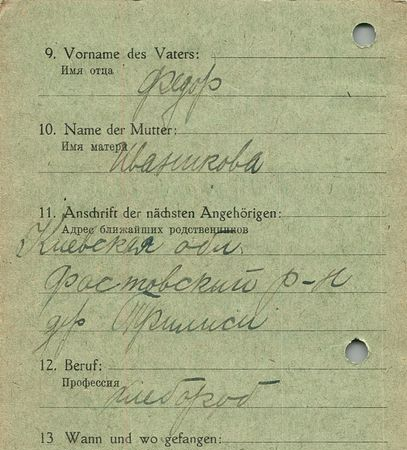 9. Vorname des Vaters:
Имя отца
Федор
10. Name der Mutter:
Имя матера
Иваникова
11. Anschrift der nächsten Angehörigen:
Адрес ближайших родственников
Киевская обл.
Фастовский р-н
д-р Трилиси
12. Beruf:
Профессия
хлебороб
13 Wann und wo gefangen: